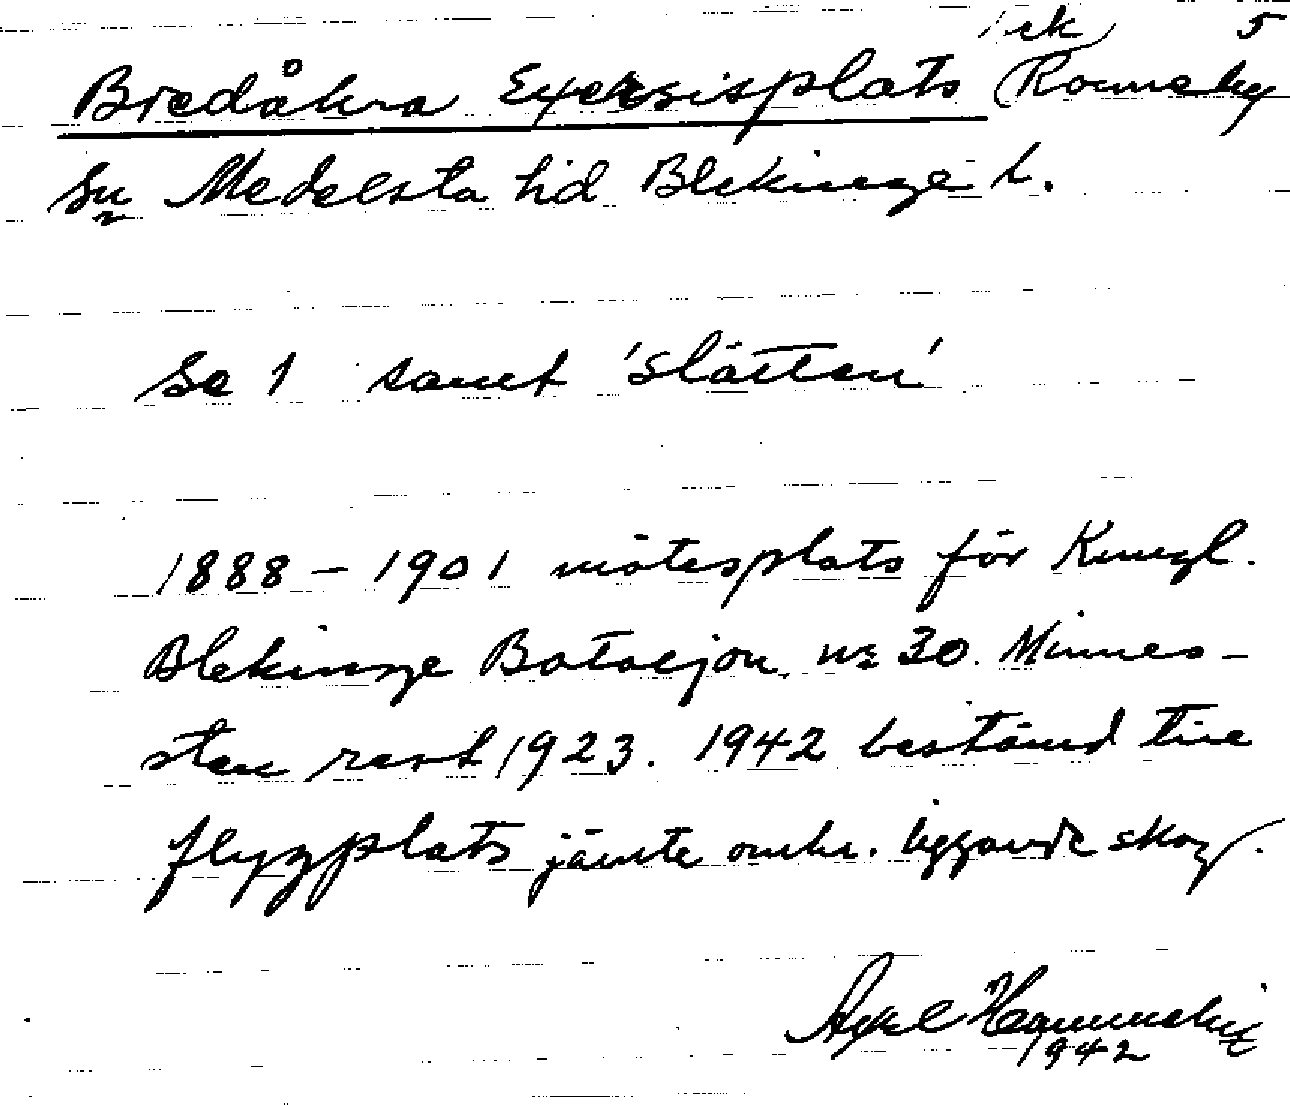 ek 5
Bredåkra Exersisplats (Ronneby
Sn Medelsta hd Blekinge l.
Se 1 samt 'Slätten'
1888 – 1901 mötesplats för Kungl.
Blekinge Bataljon nr 30. Minnes-
sten rest 1923. 1942 bestämd till
flygplats jämte omkr. liggande skog.
Axel Hammneby
1942